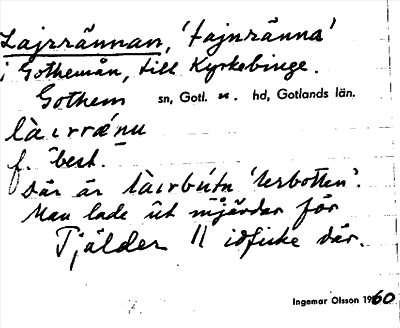 Lajrrännan, 'tajnränna'
i Gothemån, till Kyrkebinge.
Gothem sn, Gotl. n. hd, Gotlands län.
làιrrǽnu
f. best.
Där är làιrbútn 'lerbotten'.
Man lade ut mjärdar för
Tjälder || idficke där.
Ingemar Olsson 1960